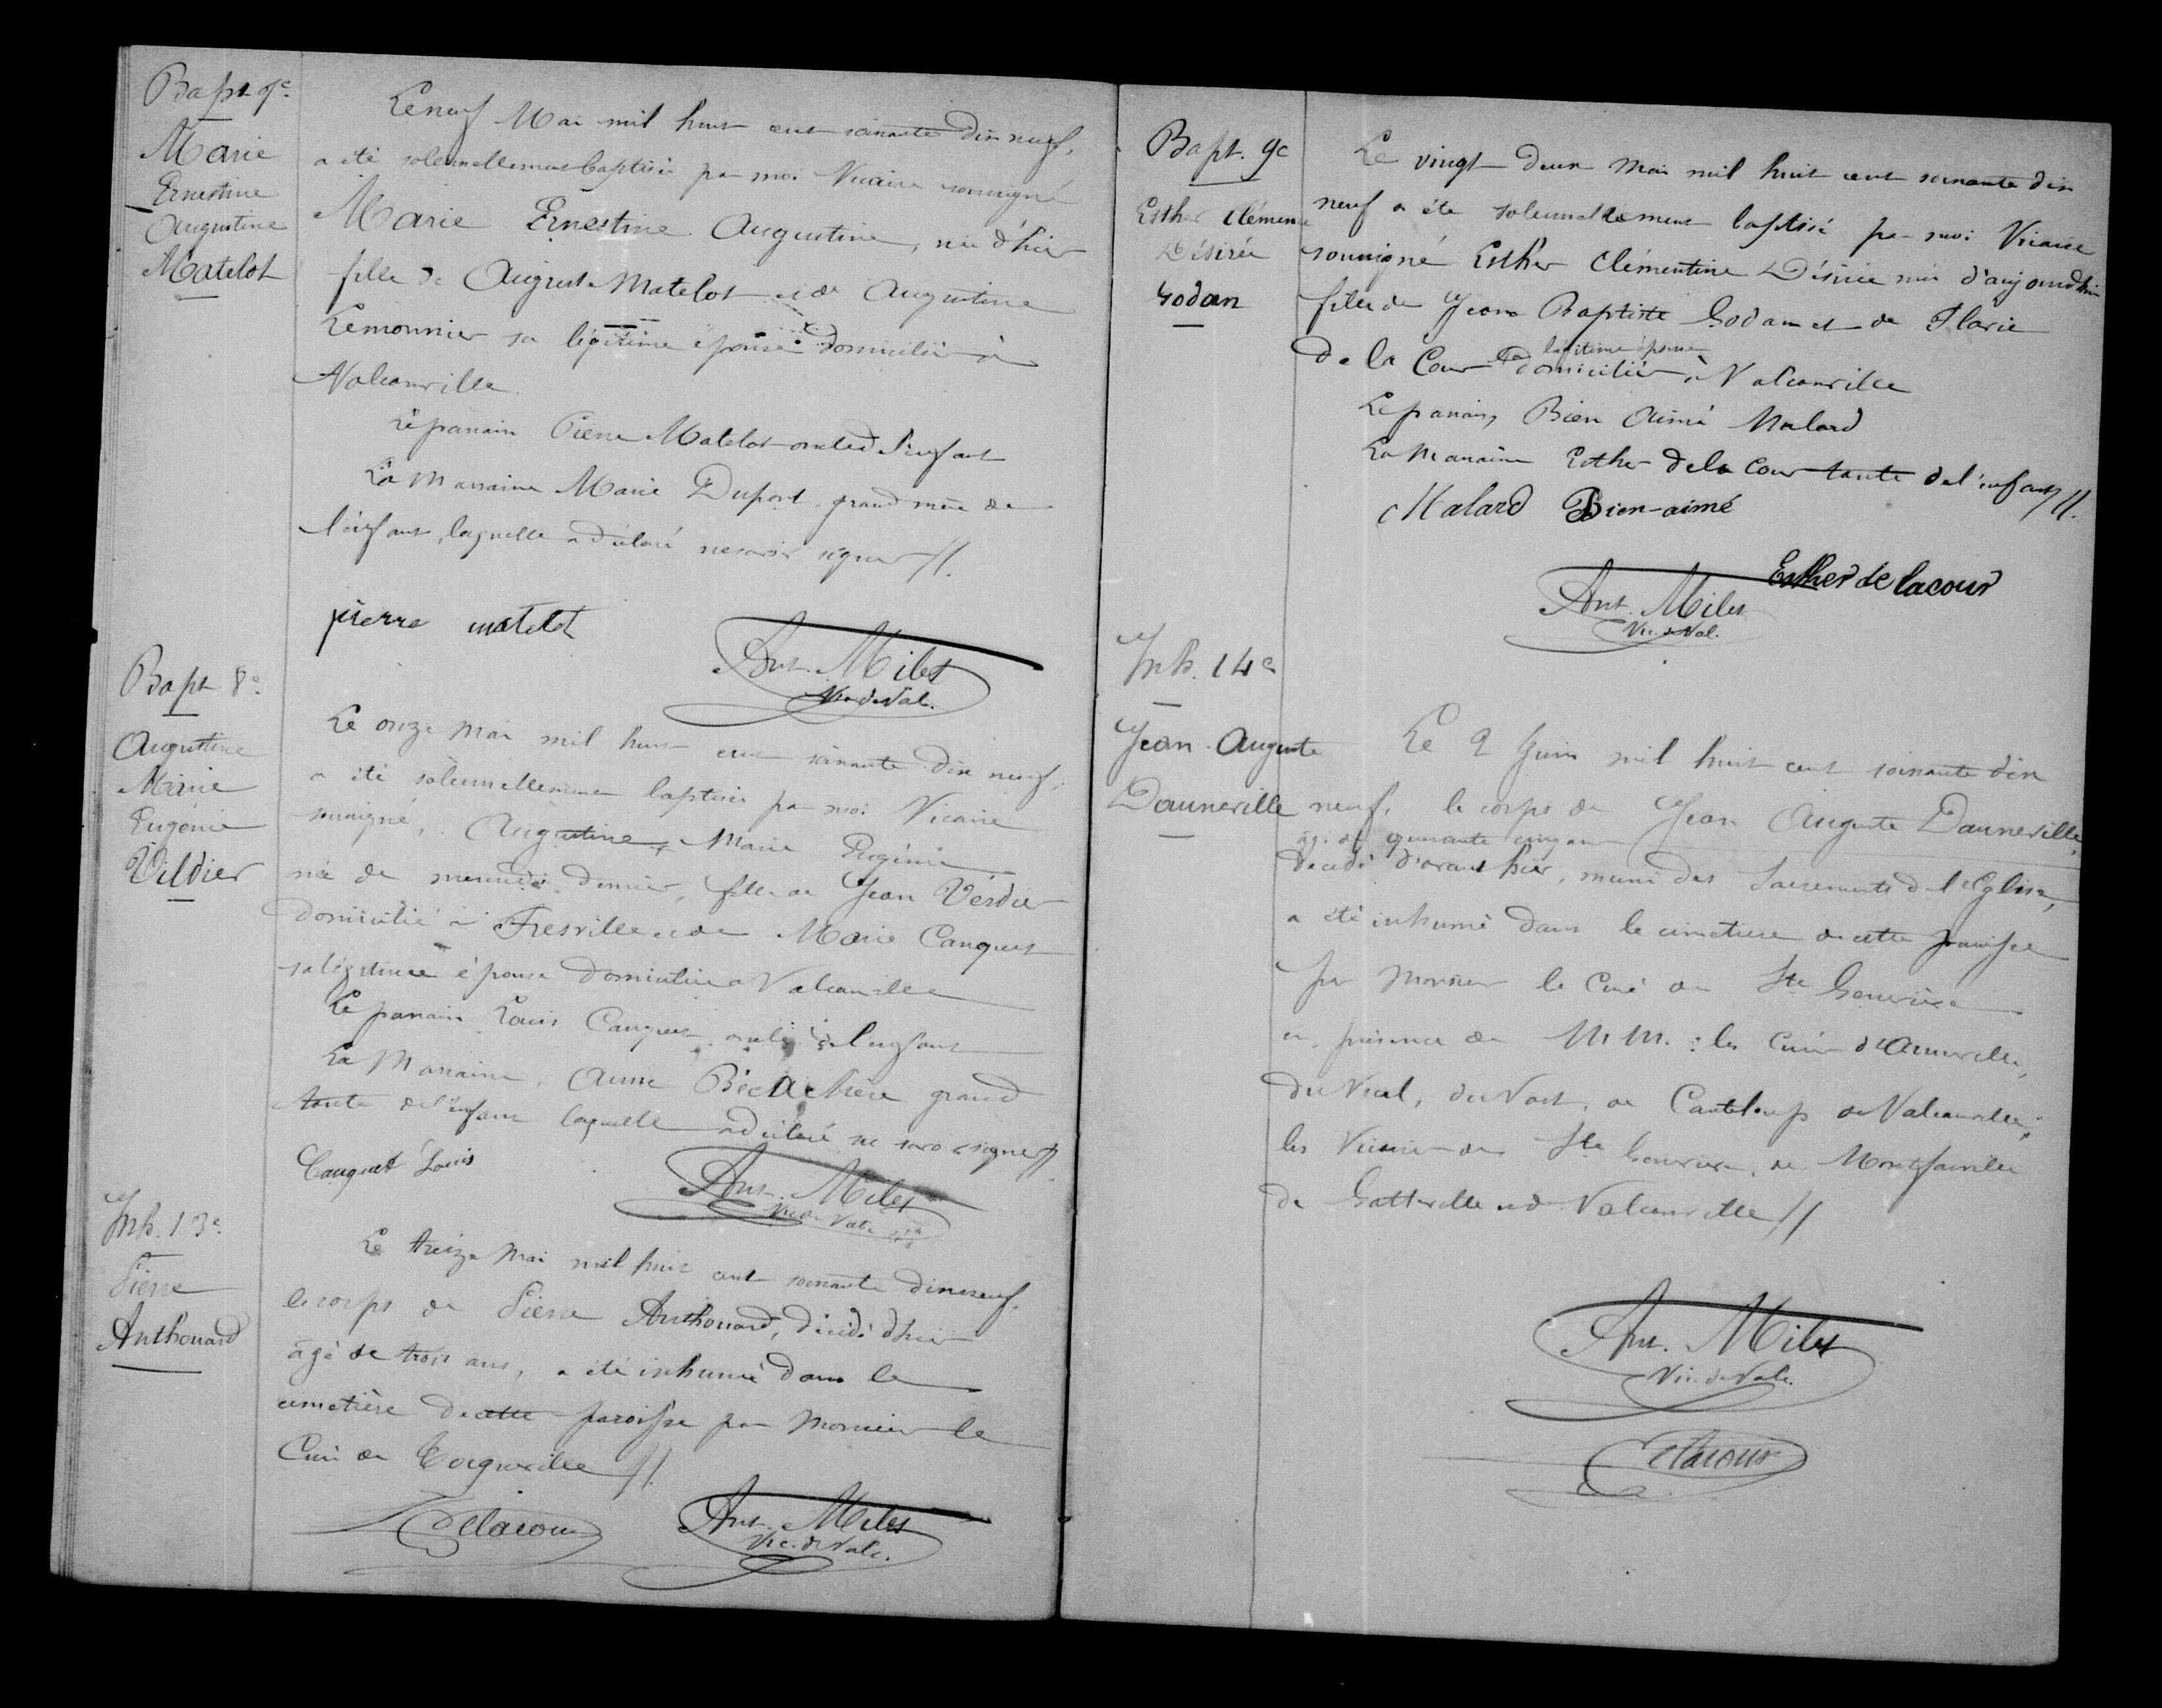 Bapt 7e
Marie
Ernestine
Augustine
Matelot
Le neuf Mai mil huit cent soixante dix neuf,
a été solennellement baptisée par moi Vicaire soussigné
Marie Ernestine Augustine, née d'hier
fille de August Matelot et de Augustine
Lemonnier sa légitime épouse domiciliés à
Valcanville.
Le parrain Pierre Matelot oncle de l'enfant
La Marraine Marie Dupont grand mère de
l'enfant, laquelle a déclaré ne savoir signer //.
pierre matelot
Ant. Milet
Vic. de Valc.
Bapt 8e
Augustine
Marie
Eugénie
Verdier
Le onze Mai mil huit cent soixante dix neuf,
a été solennellement baptisée par moi Vicaire
soussigné, Augustine, Marie Eugénie
née de mercredi dernier, fille de Jean Verdier
domicilié à Fresville et de Marie Canquet
sa légitime épouse domiciliée à Valcanville
Le parrain Louis Canquet oncle de l'enfant
La Marraine, Anne grand
tante de l'enfant laquelle a déclaré ne savoir signer //.
Canquet Louis
Ant. Milet
Vic. de Valc.
Inh. 13e
Pierre
Anthouard
Le treize Mai mil huit cent soixante dix neuf,
le corps de Pierre Anthouard, décédé d'hier
âgé de trois ans, a été inhumé dans le
cimetière de cette paroisse par Monsieur le
Curé de Tocqueville //.
Delacour
Ant. Milet
Vic. de Valc.
Bapt. 9e
Esther Clémen
Désirée
Godan
Le vingt deux Mai mil huit cent soixante dix
neuf a été solennellement baptisé par moi Vicaire
soussigné Esther Clémentine Désirée née d'aujourd'hui
fille de Jean Baptiste Godan et de Flavie
de la Cour sa légitime épouse domiciliés à Valcanville
Le parrain, Bien Aimé Malard
La Marraine Esther de la Cour tante de l'enfant //.
Malard Bien-aimé
Esther de lacour
Ant. Milet
Vic. de Val.
Inh. 14e
Jean-Auguste
Danneville
Le 2 Juin mil huit cent soixante dix
neuf, le corps de Jean Auguste Danneville,
âgé de quarante cinq ans
décédé d'avant hier, muni des Sacrements de l'Eglise,
a été inhumé dans le cimetière de cette paroisse
par Monsieur le Curé de Ste Geneviève
en présence de MM. : les Curés d'Anneville,
du Vicel, du Vast, de Canteloup de Valcanville;
les Vicaires de Ste Geneviève, de Montfarville
de Gatteville et de Valcanville //
Ant. Milet
Vic. de Valc.
Delacour